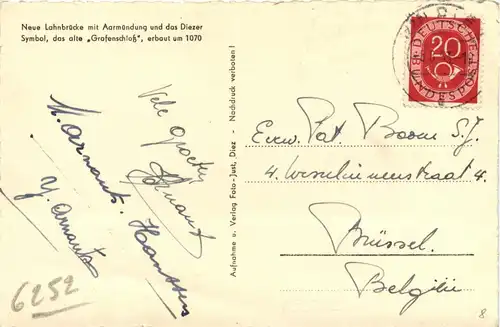 Neue Lahnbrücke mit Aarmündung und das Diezer
Symbol, das alte „Grafenschloß", erbaut um 1070
Vele groeten
H. Arnauts. Hanssens
Y. Arnauts
6252
Aufnahme u. Verlag Foto-Just, Diez - Nachdruck verboten!
DEUTSCHE
BUNDESPOST
20
Eerw. Pat. Boom S.J.
4.
4.
Brüssel.
Belgiën
8